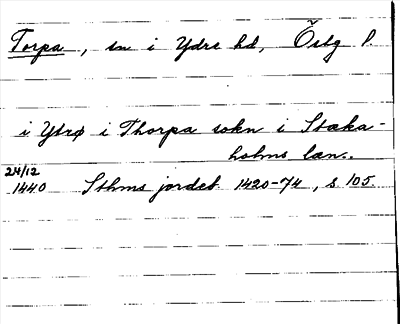 Torpa, sn i Ydre hd, Östg l.
i Ydrø i Thorpa sokn i Stæka-
holms læn.
24/12
1440 Sthms jordeb. 1420-74, s. 105.